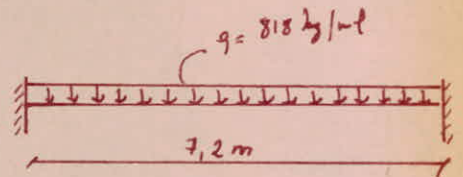 q = 818 kg/ml
7,2 m